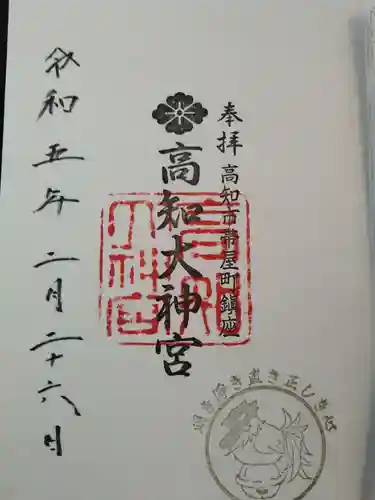 奉拝
高知市帯屋町鎮座
高知大神宮
令和五年二月二十六日